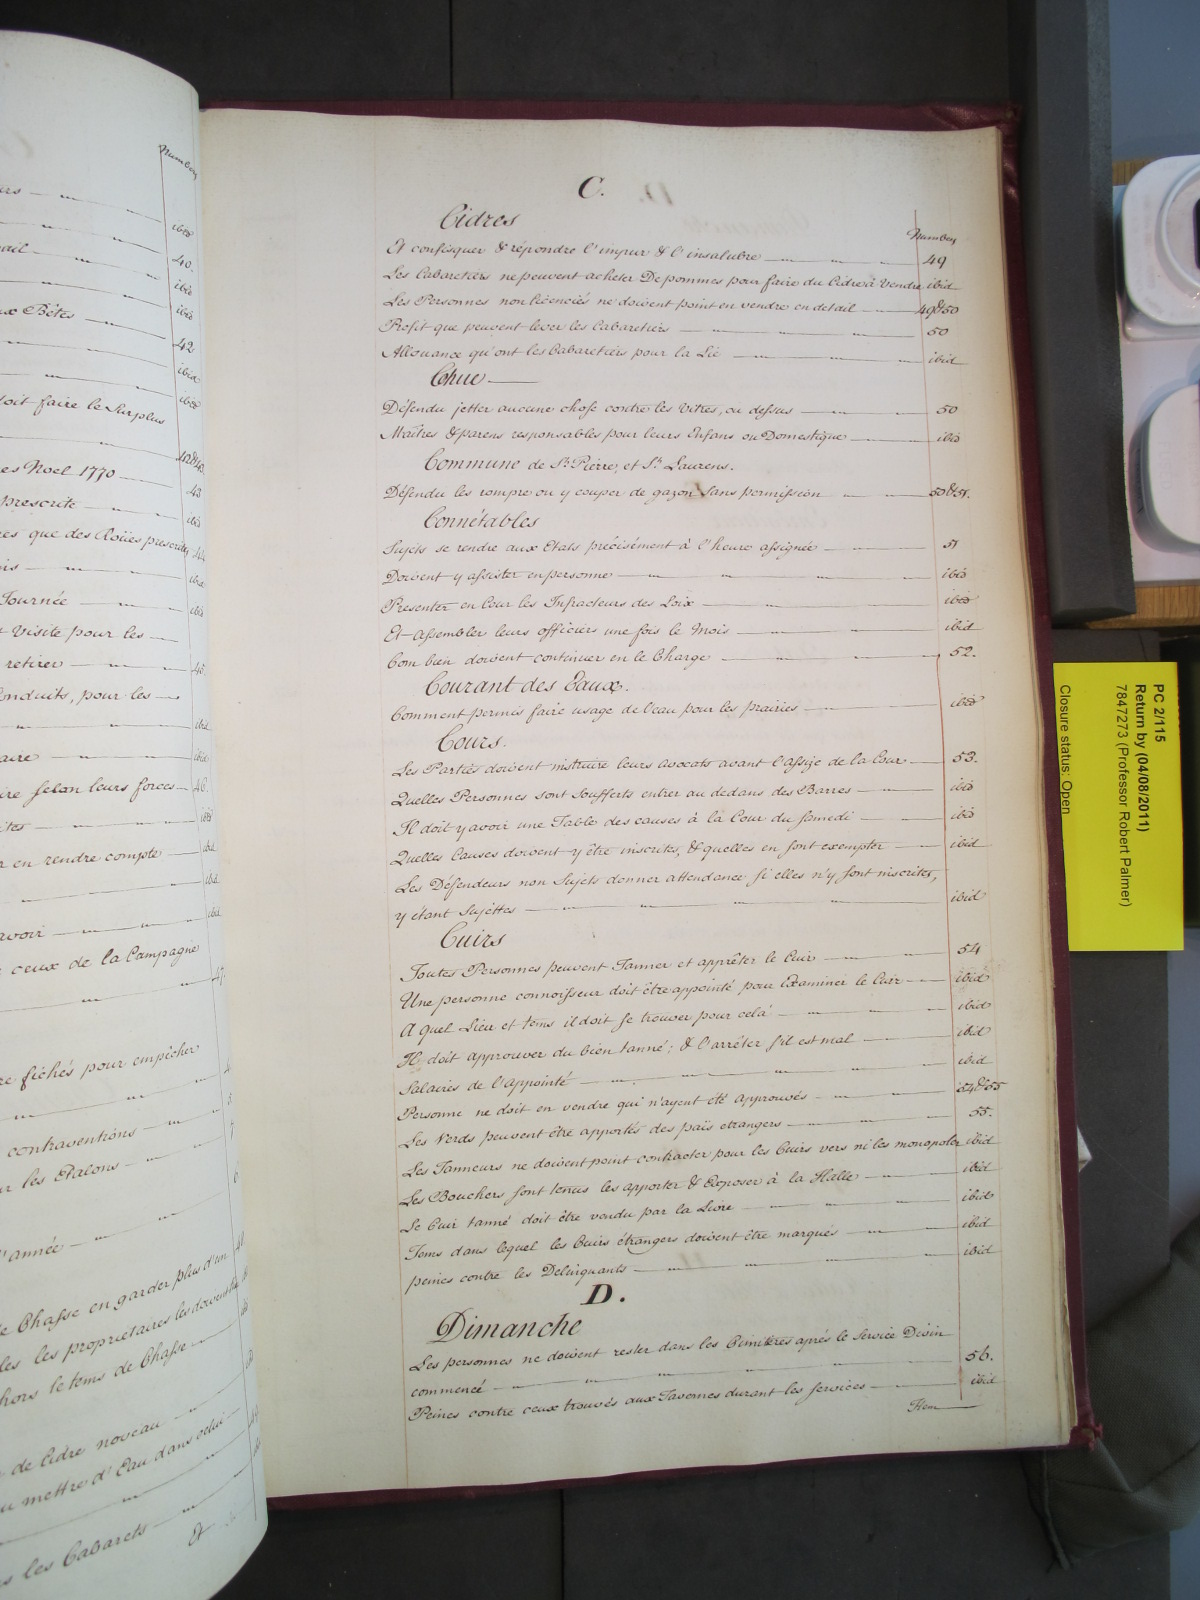 Number
urs
ibid
40.
ail
ibid
ibid
ux Bêtes
42
ibid
ibid
doit faire le Surplus
42&43
es Noel 1770
43
prescrite
ibid
res que des Roües prescrites 44
is
ibid
Tournée
ibid
Visite pour les
retirer
45
Conduits, pour les
ibid
aire
ibid
ire selon leurs forces 46.
ites
ibid
r en rendre compte
ibid
ibid
ibid
avoir
ceux de la Campagne
47
re fichés pour empêcher
contraventions
ur les Etalons
l'année
de Chasse en garder plus d'un
les les proprietaires les doivent
hors le tems de Chasse
de Cidre noveau
ou mettre d'Eau dans celui
s les Cabarets
&
C.
Cidres
Number
Et confisquer & répondre l'impur & l'insalubre 49
Les Cabaretiers ne peuvent acheter De pommes pour faire du Cidre à Vendre ibid
Les Personnes non licenciés ne doivent point en vendre en detail 49&50
Profit que peuvent lever les Cabaretiers 50
Allouance qu'ont les Cabaretiers pour la Lie ibid
Chue
Défendu jetter aucune chose contre les Vitres, ou dessus 50
Maîtres & parens responsables pour leurs Enfans ou Domestique ibid
Commune de St. Pierre, et St. Laurens.
Défendu les rompre ou y couper de gazon Sans permission 50&51.
Connétables
Sujets se rendre aux Etats précisément à l'heure assignée 51
Doivent y assister en personne ibid
Presenter en Cour les Infracteurs des Loix ibid
Et Assembler leurs officiers une fois le Mois ibid
Com bien doivent continuer en le Charge 52.
Courant des Eaux.
Comment permis faire usage de l'eau pour les prairies ibid
Cours.
Les Parties doivent instruire leurs avocats avant l'assize de la Cour 53.
Quelles Personnes sont soufferts entrer au dedans des Barres ibid
Il doit y avoir une Table des causes à la Cour du Samedi ibid
Quelles Causes doivent y être inscrites, & quelles en sont exempter ibid
Les Défendeurs non Sujets donner attendance si elles n'y sont inscrites,
y étant Sujettes ibid
Cuirs
Toutes Personnes peuvent Tanner et apprêter le Cuir 54
Une personne connoisseur doit être appointé pour Examiner le Cuir ibid
A quel Lieu et tems il doit se trouver pour celà ibid
Il doit approuver du bien tanné; & l'arrêter s'il est mal ibid
Salaires de l'appointé ibid
Personne ne doit en vendre qui n'ayent été approuvés 54&55
Les Verds peuvent être apportés des païs etrangers 55.
Les Tanneurs ne doivent point contracter pour les Cuirs vers ni les monopoler ibid
Les Bouchers sont tenus les apporter & Exposer à la Halle ibid
Le Cuir tanné doit être vendu par la Livre ibid
Tems dans lequel les Cuirs étrangers doivent être marqués ibid
peines contre les Delinquants ibid
D.
Dimanche
Les personnes ne doivent rester dans les Cimitères après le Service Divin
commencé 56.
Peines contre ceux trouvés aux Tavernes durant les Services ibid
Item
PC 2/115
Return by (04/08/2011)
7847273 (Professor Robert Palmer)
Closure status: Open